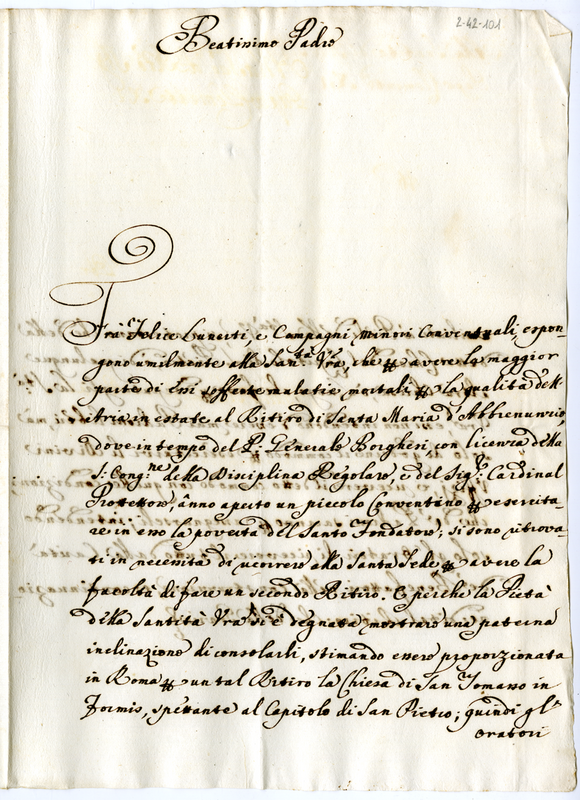 2-42-101
Beatissimo Padre
Frà Felice e Compagni minori Conventuali, espon-
gono umilmente alla Santà Vrã, che p avere la maggior
parte di Essi sofferte malatie mortali p la qualità dell'
Aria in estate al Ritiro di Santa Maria d'Abbrenunzio,
dove in tempo del P. Generale Borghesi, con licenza della
S. Congne della Disciplina Regolare, e del Sigr Cardinal
Protettore, ânno aperto un piccolo Conventino p esercita-
re in esso la povertà del Santo Fondatore; si sono ritrova-
ti in necessità di ricorrere alla Santa Sede p avere la
facoltà di fare un secondo Ritiro. E perche la Pietà
della Santità Vrã si è degnata mostrare una paterna
inclinazione di consolarli, stimando essere proporzionata
in Roma p un tal Ritiro la Chiesa di San Tomasso in
Formis, spettante al Capitolo di San Pietro; quindi gli
oratori